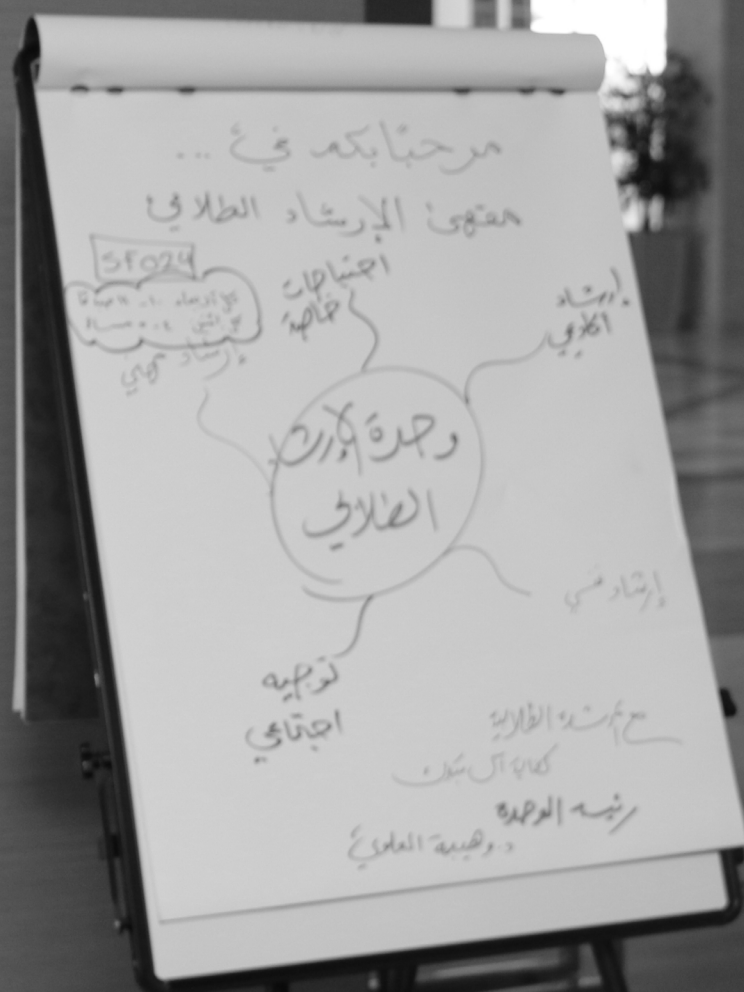 مرحبًا بكم في ...
مقهى الإرشاد الطلابي
SF024
كل أربعاء
كل اثنين
احتياجات
خاصة
إرشاد
أكاديمي
إرشاد مهني
وحدة الإرشاد
الطلابي
إرشاد نفسي
توجيه
اجتماعي
مع المرشدة الطلابية
رئيسة الوحدة
د. وهيبة العلوي